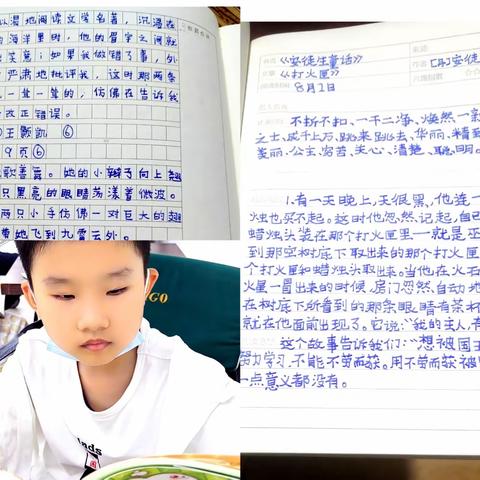 以混地阅读文学名著，沉浸在
海洋里时，他的眉宇之间就
出笑意；如果我做错了事，外
严肃地批评我，这时那两条
一耸一耸的，仿佛在告诉我
改正错误。
王颢凯 ⑥
9页⑥
歌善舞。她的小辫子向上翘
只黑亮的眼睛荡漾着微波。
两只小手仿佛一对巨大的翅
带她飞到九霄云外。
《安徒生童话》
《打火匣》
8月1日
[丹]安徒
不折不扣、一干二净、焕然一新
之士、成千上万、跳来跳去、华丽、精致
美丽、公主、穷苦、关心、清楚、聪明。
1.有一天晚上，天很黑，他连一
烛也买不起。这时他忽然记起，自己
蜡烛头装在那个打火匣里—就是巫
到那空树底下取出来的那个打火匣
个打火匣和蜡烛头取出来。当他在火石
火星一冒出来的时候，房门忽然自动地
在树底下所看到的那条眼睛有茶杯
就在他面前出现了。它说：“我的主人，有
这个故事告诉我们：“想被国王
努力学习，不能不劳而获。用不劳而获被
一点意义都没有。
NGO
nds